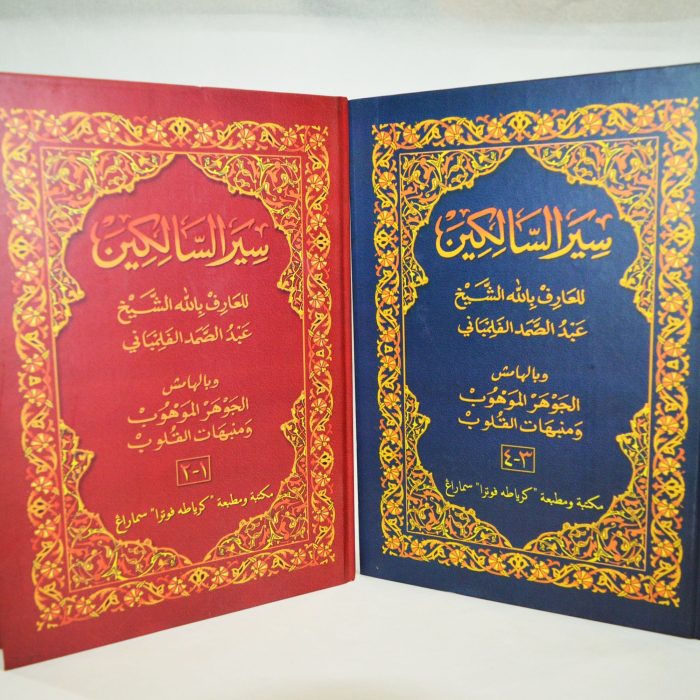 سِيَرُ السَّالِكِينَ
للعَارِفِ بِاللهِ الشَّيْخِ
عَبْدُ الصَّمَدِ الفَلِمْبَانِي
وبالهامش
الجَوْهَرُ المَوْهُوْبُ
وَمُنَبِّهَاتُ القُلُوبِ
١-٢
مكتبة ومطبعة "كرياطه فوترا" سماراغ
سِيَرُ السَّالِكِينَ
للعَارِفِ بِاللهِ الشَّيْخِ
عَبْدُ الصَّمَدِ الفَلِمْبَانِي
وبالهامش
الجَوْهَرُ المَوْهُوْبُ
وَمُنَبِّهَاتُ القُلُوبِ
٣-٤
مكتبة ومطبعة "كرياطه فوترا" سماراغ